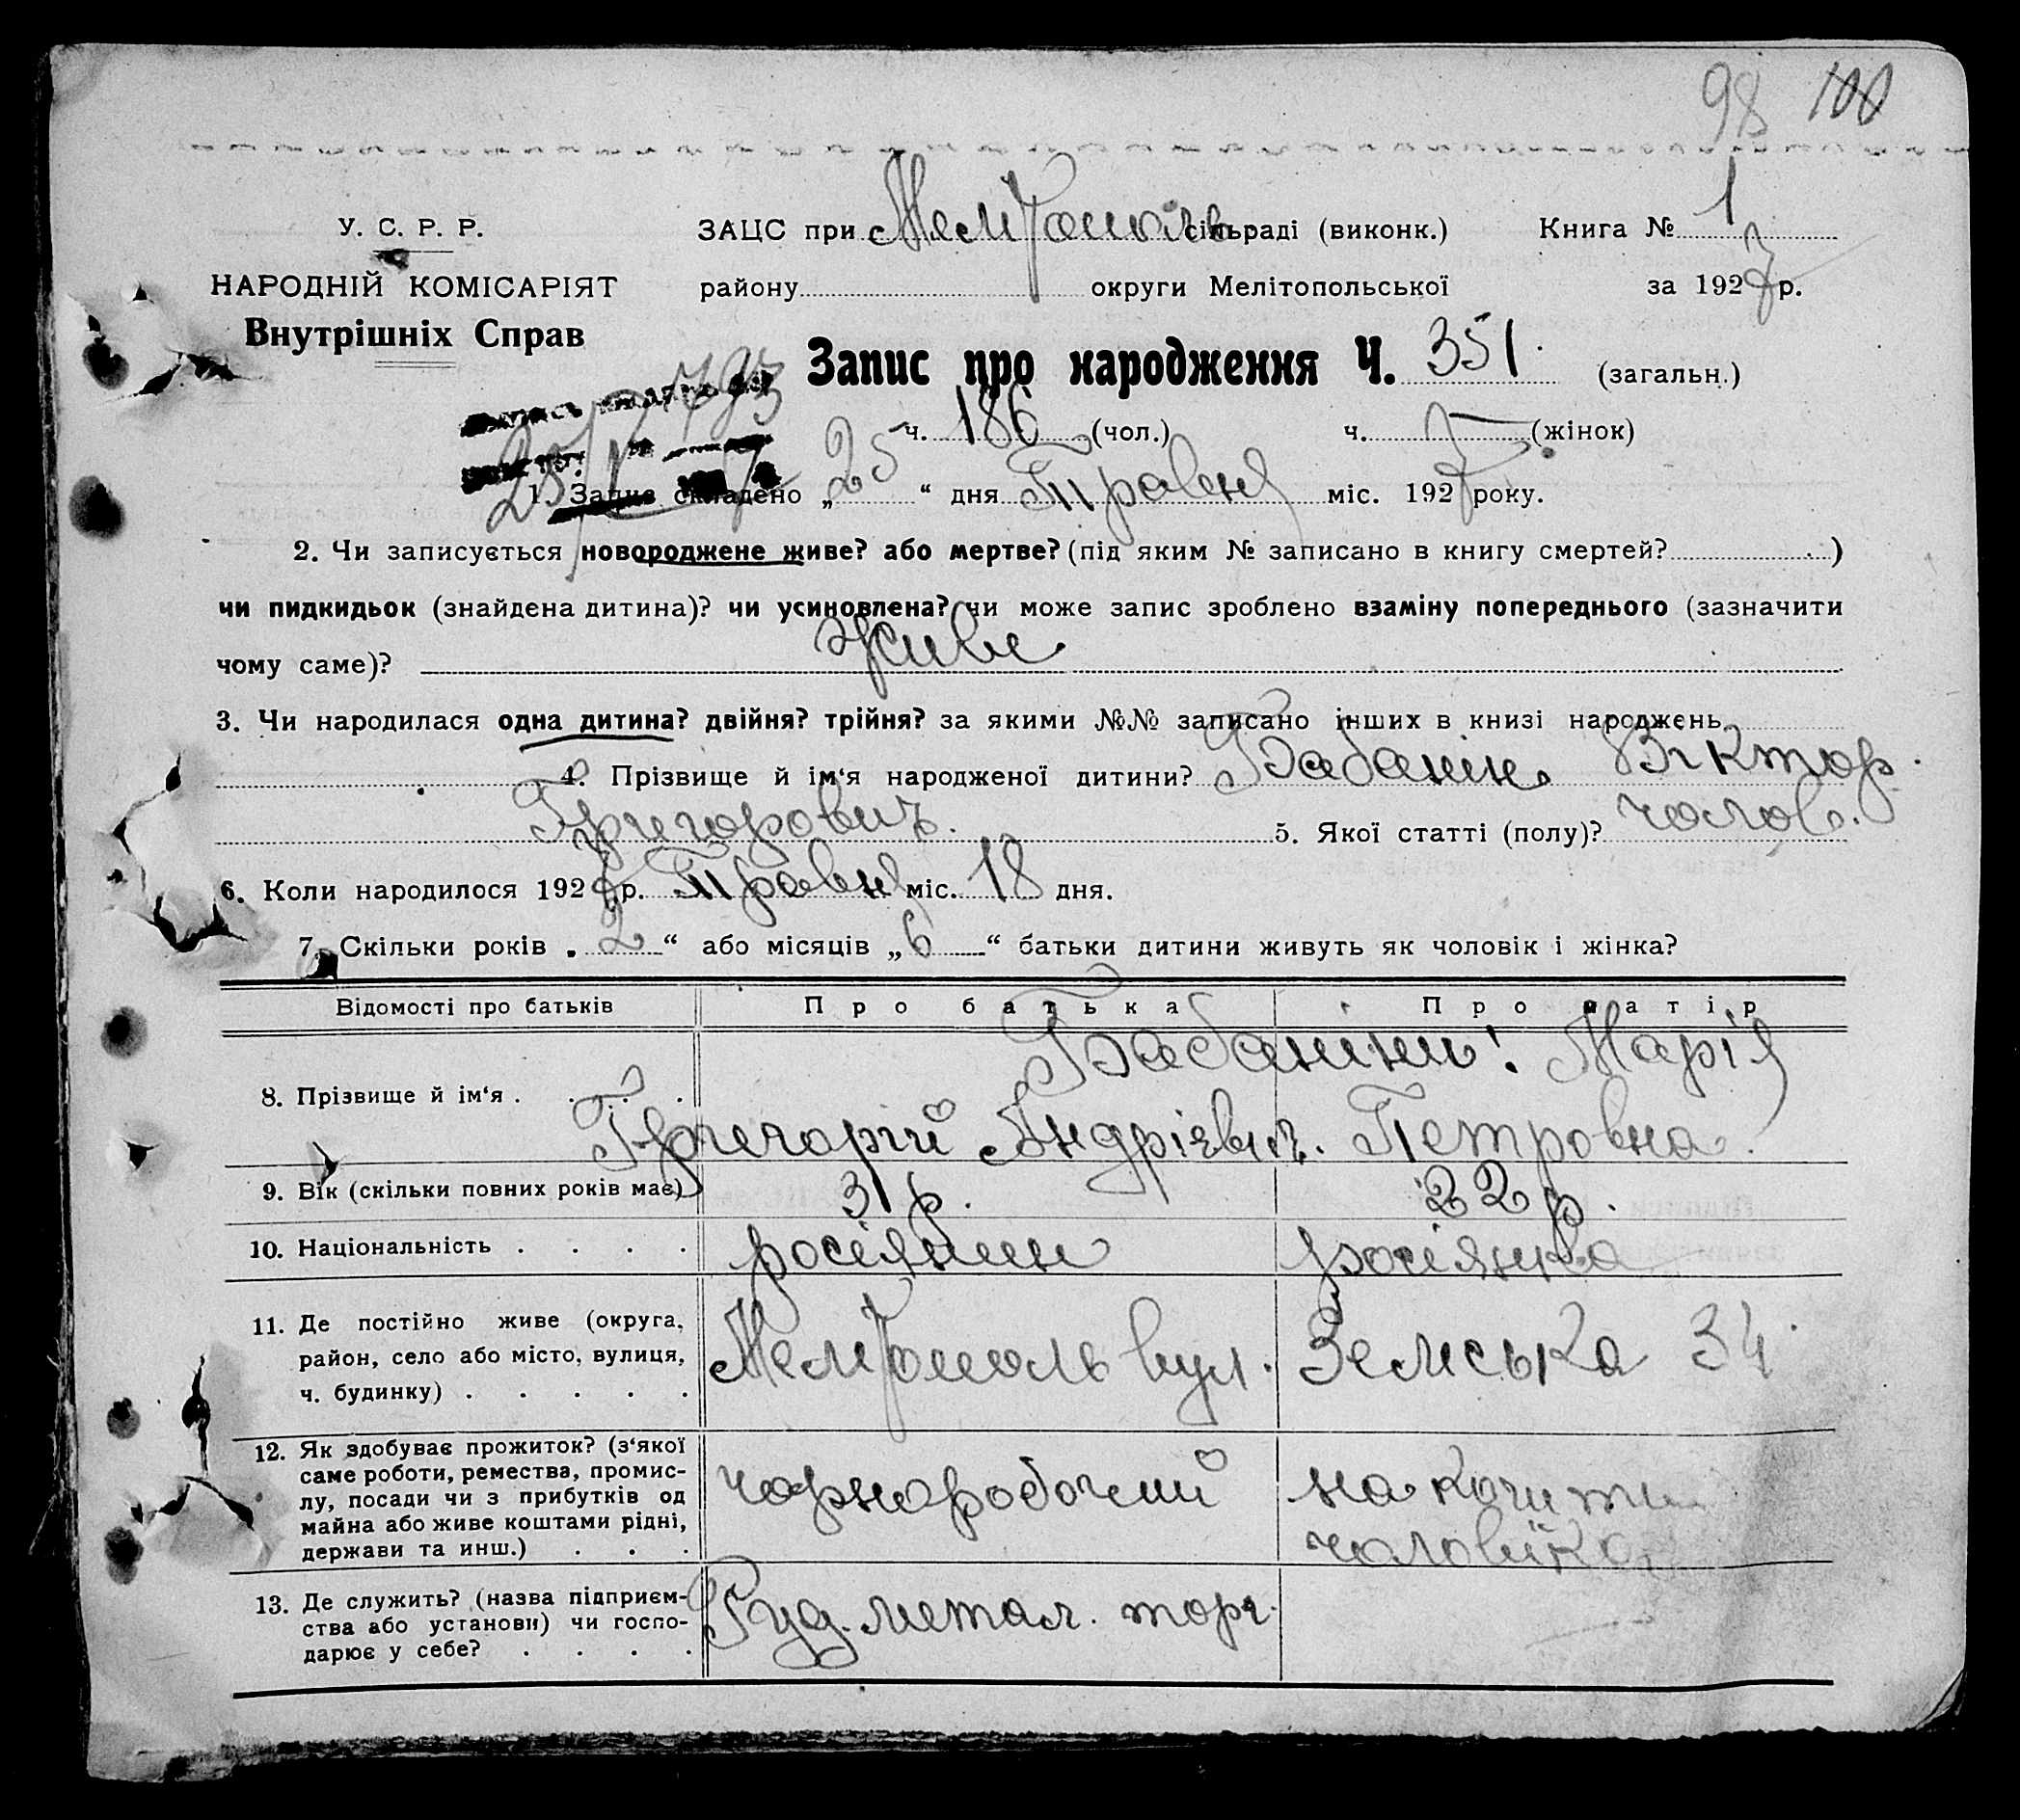 98 100
У. С. Р. Р.
НАРОДНІЙ КОМІСАРІЯТ
Внутрішніх Справ
ЗАЦС при Мелітополь сільраді (виконк.)
Книга № 1
району округи Мелітопольської
за 1927 р.
Запис про народження Ч. 351. (загальн.)
ч. 186 (чол.) ч. (жінок)
1. Запис складено „25“ дня Травня міс. 1927 року.
2. Чи записується новороджене живе? або мертве? (під яким № записано в книгу смертей? )
чи пидкидьок (знайдена дитина)? чи усиновлена? чи може запис зроблено взаміну попереднього (зазначити
чому саме)? живе
3. Чи народилася одна дитина? двійня? трійня? за якими №№ записано інших в книзі народжень
4. Прізвище й ім‘я народженої дитини? Бабанін Віктор
Григорович. 5. Якої статті (полу)? чолов.
6. Коли народилося 1927 р. Травня міс. 18 дня.
7. Скільки років „2“ або місяців „6“ батьки дитини живуть як чоловік і жінка?
Відомості про батьків Про батька Про матір
8. Прізвище й ім‘я . . . . Бабанини: Марія
Григорій Андрієвич. Петровна.
9. Вік (скільки повних років має) 31 р. 22 р.
10. Національність . . . . росіянин росіянка
11. Де постійно живе (округа,
район, село або місто, вулиця,
ч. будинку) . . . . . Мелітополь вул. Земська 34
12. Як здобуває прожиток? (з‘якої
саме роботи, ремества, промис-
лу, посади чи з прибутків од
майна або живе коштами рідні,
держави та инш.) . . . чорноробочий на кошти
чоловіка
13. Де служить? (назва підприєм-
ства або установи) чи госпо-
дарює у себе? . . . . Руд. метал. торг.